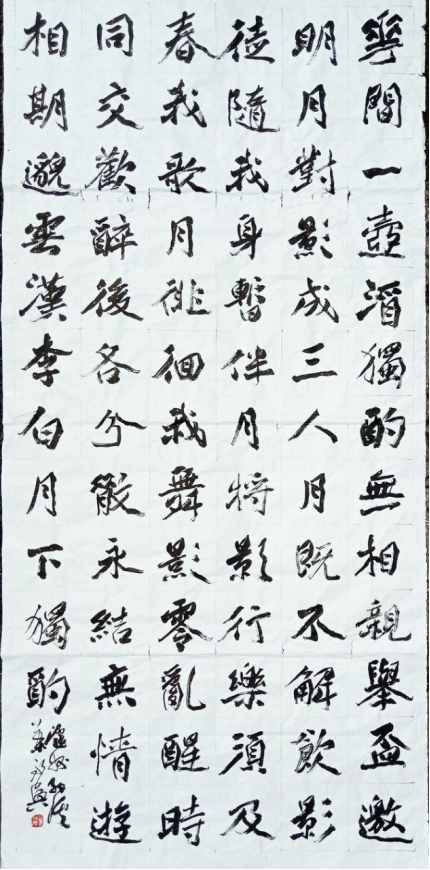 花間一壺酒獨酌無相親舉盃邀
明月對影成三人月既不解飲影
徒隨我身暫伴月將影行樂須及
春我歌月徘徊我舞影零亂醒時
同交歡醉後各分散永結無情遊
相期邈雲漢李白月下獨酌